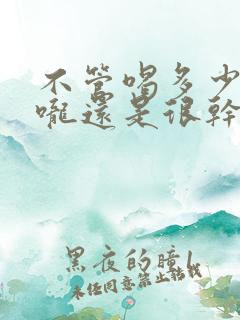 不管喝多少
嚨還是很幹
黑夜的瞳l
未经同意禁止转载